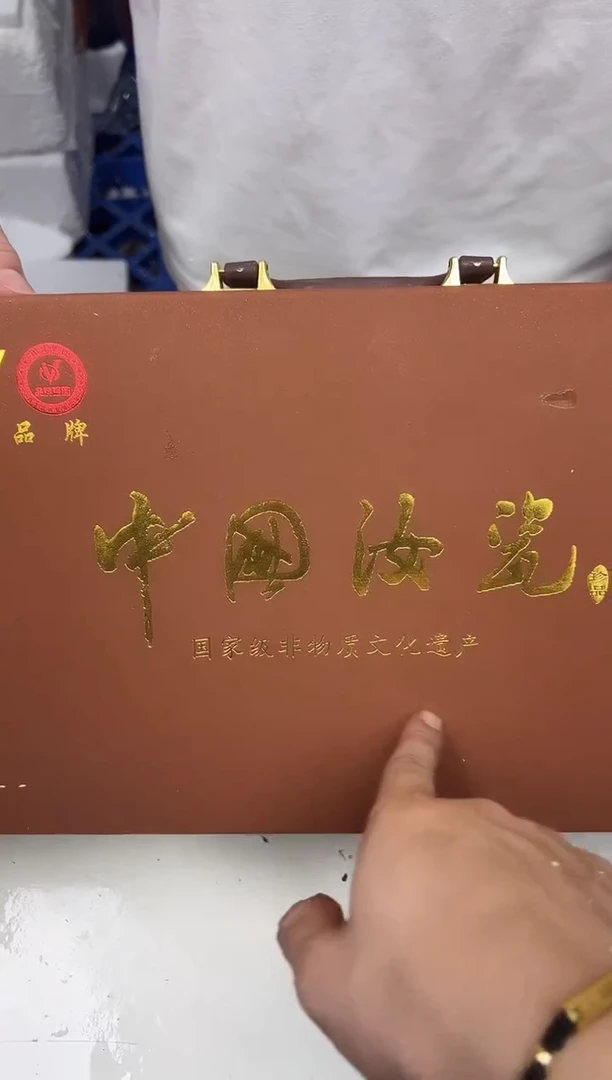 品牌
中国汝瓷
珍品
国家级非物质文化遗产